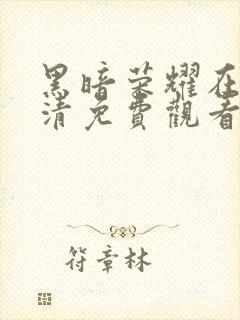 黑暗荣耀在
清免費觀看
符章林